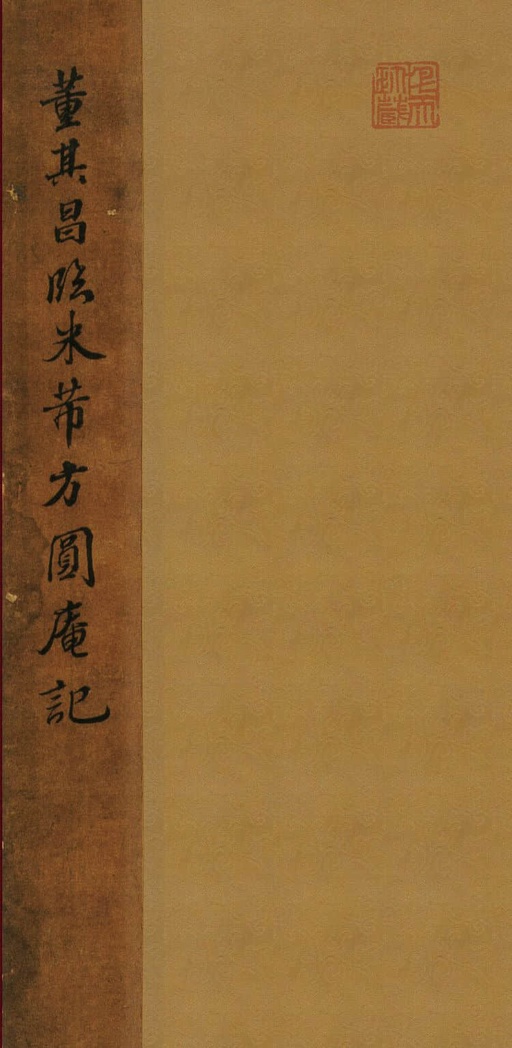 董其昌临米芾方圓庵記